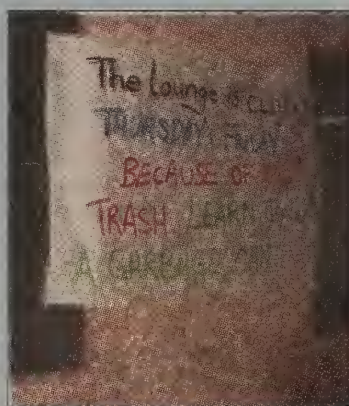 The Lounge is
THURSDAY
BECAUSE OF
TRASH LEARN
A GARBAGE CAN